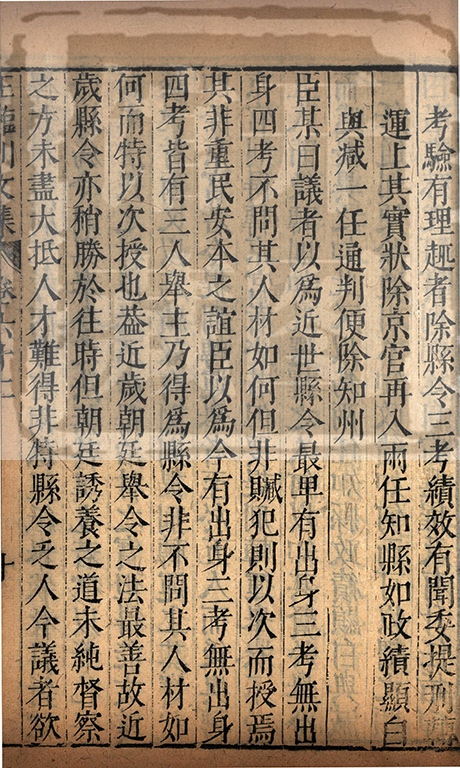 考驗有理趣者除縣令三考績效有聞委提刑轉
運上其實狀除京官再入兩任知縣如政績顯白
與減一任通判便除知州
臣某曰議者以為近世縣令最卑有出身三考無出
身四考不問其人材如何但非贓犯則以次而授焉
其非重民安本之誼臣以為今有出身三考無出身
四考皆有三人舉主乃得為縣令非不問其人材如
何而特以次授也葢近歲朝廷舉令之法最善故近
歲縣令亦稍勝於往時但朝廷誘養之道未純督察
之方未盡大抵人才難得非特縣令乏人今議者欲
王臨川文集 卷六十二 十